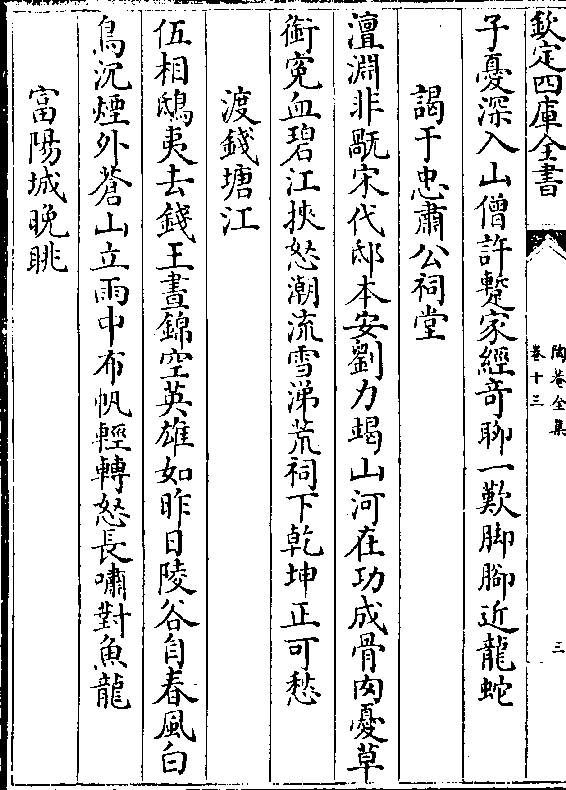 欽定四庫全書
陶菴全集
卷十三
三
子憂深入山僧許蹔家經奇聊一歎脚腳近龍蛇
謁于忠肅公祠堂
澶淵非翫宋代邸本安劉力竭山河在功成骨肉憂草
銜寃血碧江挾怒潮流雪涕荒祠下乾坤正可愁
渡錢塘江
伍相鴟夷去錢王晝錦空英雄如昨日陵谷自春風白
鳥沉煙外蒼山立雨中布帆輕轉怒長嘯對魚龍
富陽城晚眺